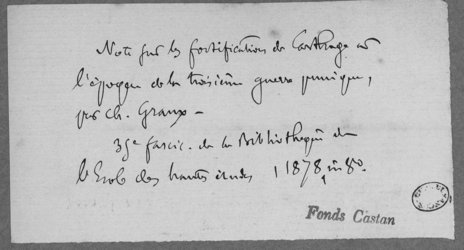 Note sur les fortifications de Carthage à
l'époque de la troisième guerre punique,
par Ch. Graux —
35e fascic. de la Bibliothèque de
l'Ecole des hautes études, 1878, in 8°.
Fonds Castan